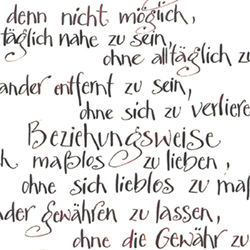 denn nicht möglich,
täglich nahe zu sein,
ohne alltäglich zu
ander entfernt zu sein,
ohne sich zu verliere
Beziehungsweise
h maßlos zu lieben,
ohne sich lieblos zu maß
nder gewähren zu lassen,
ohne die Gewähr zu